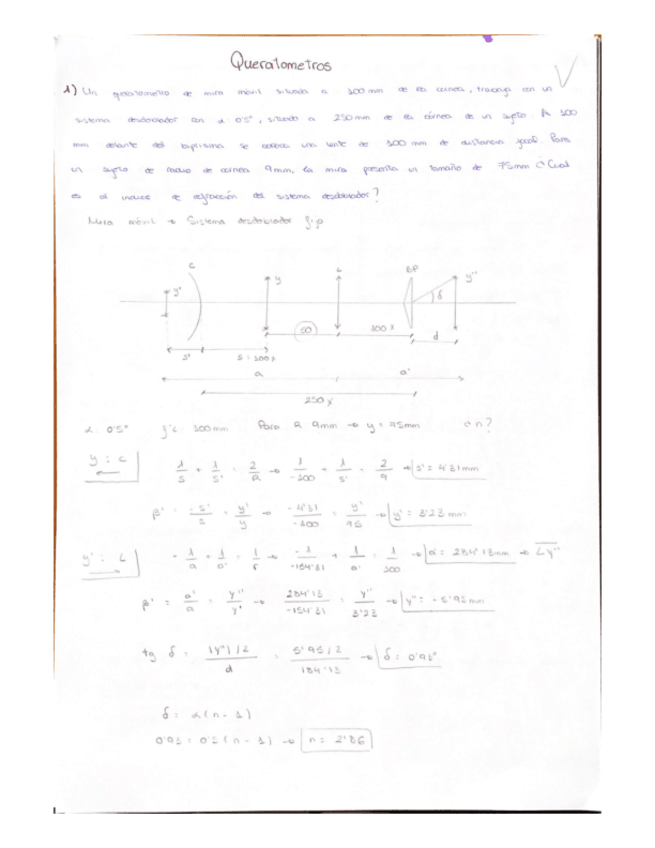 Queratometros
1) Un queratometro de mira movil situada a 100 mm de la cornea, trabaja con un
sistema desdoblador con α 0'5°, situado a 250 mm de la córnea de un sujeto. A 100
mm delante del biprisma se coloca una lente de 100 mm de distancia focal. Para
un sujeto de radio de cornea 9mm, la mira presenta un tamaño de 75mm ¿Cual
es el indice de refracción del sistema desdoblador?
Mira móvil → Sistema desdoblador fijo
c L BP
y' y y''
δ
50 100 x d
s' s = 100 x
a a'
250 x
α: 0'5° f'L: 100mm Para R 9mm → y = 75mm ¿n?
y : c
1/s + 1/s' = 2/R → 1/-100 + 1/s' = 2/9 → s' = 4'31mm
β' = -s'/s = y'/y → -4'31/-100 = y'/75 → y' = 3'23 mm
y' : L
-1/a + 1/a' = 1/f' → -1/-154'31 + 1/a' = 1/100 → a' = 284'13mm → Ly''
β' = a'/a = y''/y' → 284'13/-154'31 = y''/3'23 → y'' = -5'95mm
tg δ = |y''|/2 / d = 5'95/2 / 184'13 → δ = 0'93°
δ = α(n - 1)
0'93 = 0'5 (n - 1) → n = 2'86